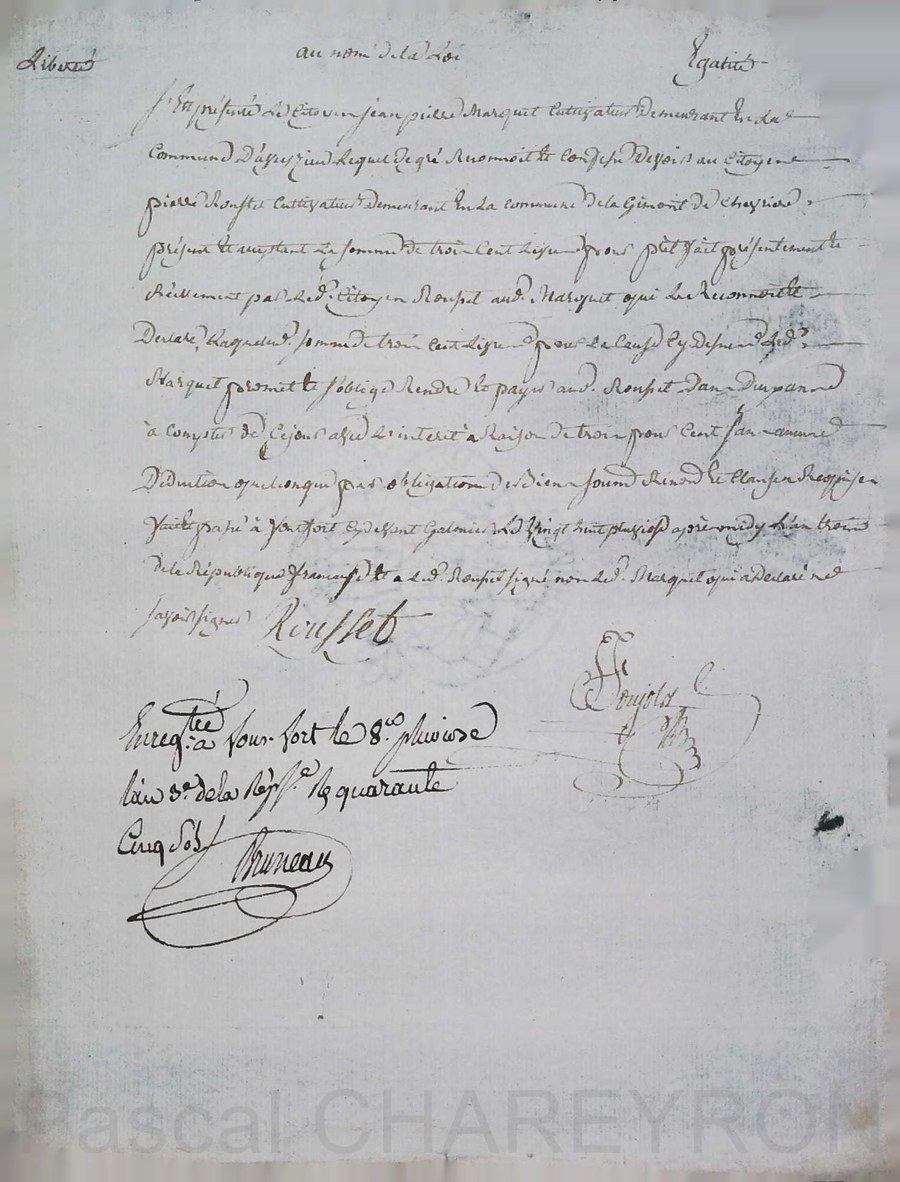 Liberté au nom de la Loi Egalité
S'est présenté Le Citoyen jean pierre Marquet Cultivateur Demeurant En La
Commune D'aveizieu Lequel de gré Reconnoit et Confesse Devoir au Citoyen
pierre Rousset Cultivateur Demeurant En La Commune de la Gimont de Chevriere
présent et acceptant La somme de trois Cent Livres pour prêt fait présentement et
réellement par Led. Citoyen Rousset aud. Marquet qui Le Reconnoit et
Declare, Laquelle d. somme de trois Cent Livres pour La Cause Cy dessus Led.
Marquet promet et s'oblige Rendre et payer aud. Rousset Dans Deux année
à Compter de Cejour avec Linteret à Raison de trois pour Cent sans aucune
Déduction quelconque par obligation de Biens soumission Renon et Clauses
faite passé à fontfort Cy devant Galmier Le Vingt huit pluviose après midy L'an trois
de la République française et a Led. Rousset signé non Led. Marquet qui a Declaré ne
savoir signer Rousset
Doujols
Enreg.tré à fonfort le pluviose
l'an 3e de la Rép. R quarante
Cinq Sols Bruneau
Pascal CHAREYRON